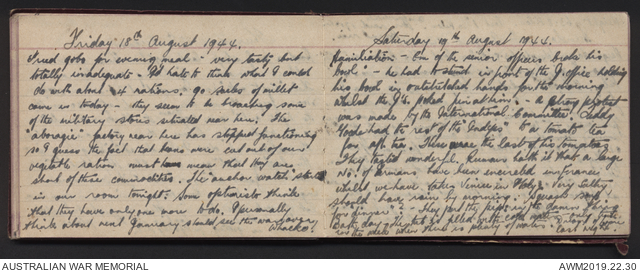 Friday 18th August 1944.
Fried gobo for evening meal - very tasty but
totally inadequate. I'd hate to think what I could
do with about 4 rations. 90 sacks of millet
came in today - they seem to be broaching some
of the military stores situated near here. The
factory near here has stopped functioning
so I guess the fact that beans were cut out of our
vegetable ration must mean that they are
short of these commodities. The anchor watch starts
in our room tonight. Some optimists think
that they have only one more to do. I personally
think about next January should see the war over.
Whacko.
Saturday 19th August 1944.
Humiliation - One of the senior officers broke his
bowl - he had to stand in front of the J. office holding
his bowl in outstretched hands for the morning
whilst the J's poked fun at him. A strong protest
was made by the International Committee. Teddy
had the rest of the to a tomato tea
for aft tea. These were the last of his tomatoes.
They tasted wonderful. Rumours hath it that a large
No. of Germans have been encircled in France
whilst we have taken Venice in Italy. Very sultry
should have rain by morning. Squash soup
for "dinner" - They had the
Bath day today
in the week when there is plenty of water.
last night
AUSTRALIAN WAR MEMORIAL
AWM2019.22.30